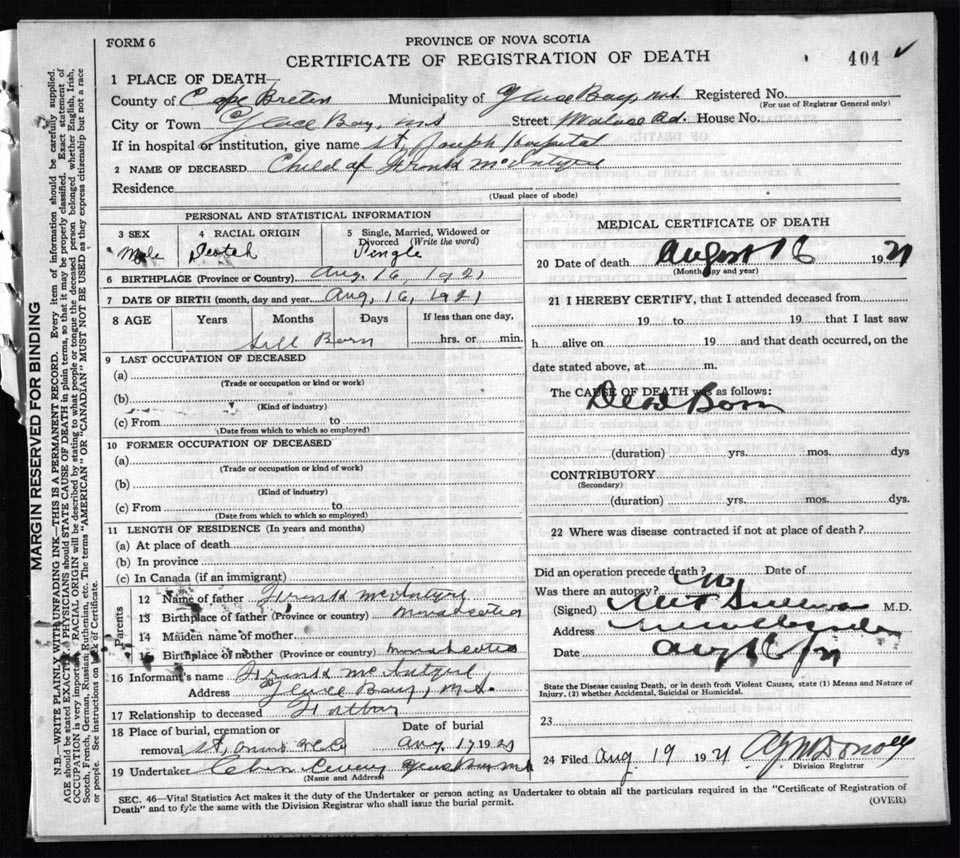 FORM 6
PROVINCE OF NOVA SCOTIA
CERTIFICATE OF REGISTRATION OF DEATH
404 ✓
1 PLACE OF DEATH—
County of Cape Breton Municipality of Glace Bay, N.S. Registered No.
(For use of Registrar General only)
City or Town Glace Bay, N.S Street Rd. House No.
If in hospital or institution, give name St. Joseph Hospital
2 NAME OF DECEASED Child of Frank McIntyre
Residence
(Usual place of abode)
PERSONAL AND STATISTICAL INFORMATION
3 SEX 4 RACIAL ORIGIN 5 Single, Married, Widowed or Divorced (Write the word)
Male Scotch Single
6 BIRTHPLACE (Province or Country) Aug. 16, 1921
7 DATE OF BIRTH (month, day and year) Aug, 16, 1921
8 AGE Years Months Days If less than one day,
hrs. or min.
Still Born
9 LAST OCCUPATION OF DECEASED
(a)
(Trade or occupation or kind or work)
(b)
(Kind of industry)
(c) From to
(Date from which to which so employed)
10 FORMER OCCUPATION OF DECEASED
(a)
(Trade or occupation or kind of work)
(b)
(Kind of industry)
(c) From to
(Date from which to which so employed)
11 LENGTH OF RESIDENCE (In years and months)
(a) At place of death
(b) In province
(c) In Canada (if an immigrant)
Parents
12 Name of father Frank McIntyre
13 Birthplace of father (Province or country) Nova Scotia
14 Maiden name of mother
15 Birthplace of mother (Province or country) Nova Scotia
16 Informant's name Frank McIntyre
Address Glace Bay, N.S.
17 Relationship to deceased Father
18 Place of burial, cremation or removal Date of burial
St, Aug 17 1921
19 Undertaker Glace Bay N.S
(Name and Address)
MEDICAL CERTIFICATE OF DEATH
20 Date of death August 16 1921
(Month day and year)
21 I HEREBY CERTIFY, that I attended deceased from
19 to 19 that I last saw
h alive on 19 and that death occurred, on the
date stated above, at m.
The CAUSE OF DEATH was as follows:
Dead Born
(duration) yrs. mos. dys
CONTRIBUTORY
(Secondary)
(duration) yrs. mos. dys.
22 Where was disease contracted if not at place of death?
Did an operation precede death? Date of
Was there an autopsy? No
(Signed) M.D.
Address New Aberdeen
Date Aug 16/21
State the Disease causing Death, or in death from Violent Causes, state (1) Means and Nature of
Injury, (2) whether Accidental, Suicidal or Homicidal.
23
24 Filed Aug 19 1921
Division Registrar
SEC. 46—Vital Statistics Act makes it the duty of the Undertaker or person acting as Undertaker to obtain all the particulars required in the "Certificate of Registration of
Death" and to fyle the same with the Division Registrar who shall issue the burial permit.
(OVER)
MARGIN RESERVED FOR BINDING
N.B.—WRITE PLAINLY WITH UNFADING INK—THIS IS A PERMANENT RECORD. Every item of information should be carefully supplied.
AGE should be stated EXACTLY. PHYSICIANS should STATE CAUSE OF DEATH in plain terms, so that it may be properly classified. Exact statement of
OCCUPATION is very important. RACIAL ORIGIN will be described by stating to what people or tongue the deceased person belonged whether English, Irish,
Scotch, French, German, Russian, Ruthenian, etc. The terms "AMERICAN" OR "CANADIAN" MUST NOT BE USED as they express citizenship but not a race
or people. See instructions on back of Certificate.